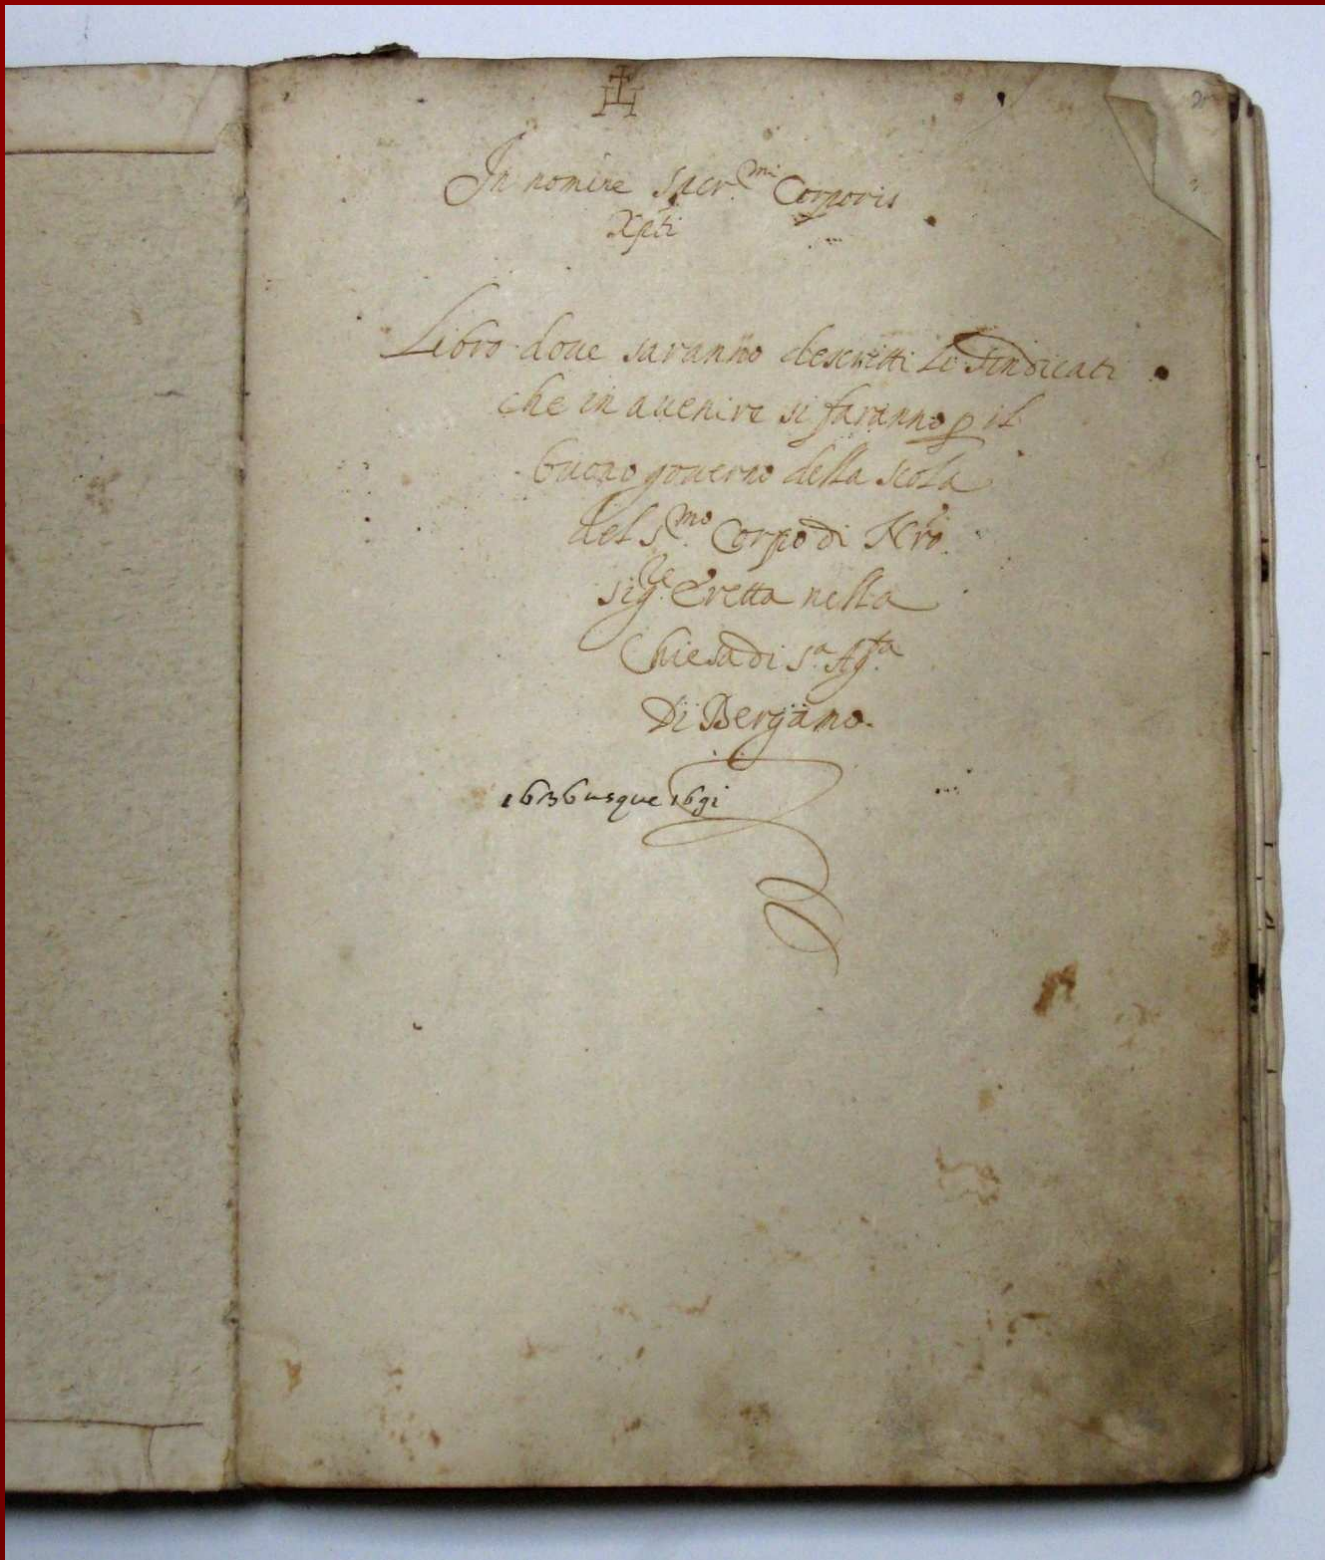 In nomine Sacr.mi Corporis
Xpti
Libro doue saranno descritti Li Sindicati
che in auenire si faranno p il
buono gouerno della scola
del S.mo Corpo di Nro.
Sig.re Eretta nella
Chiesa di S.a Ag.ta
Di Bergamo.
1636 usque 1691